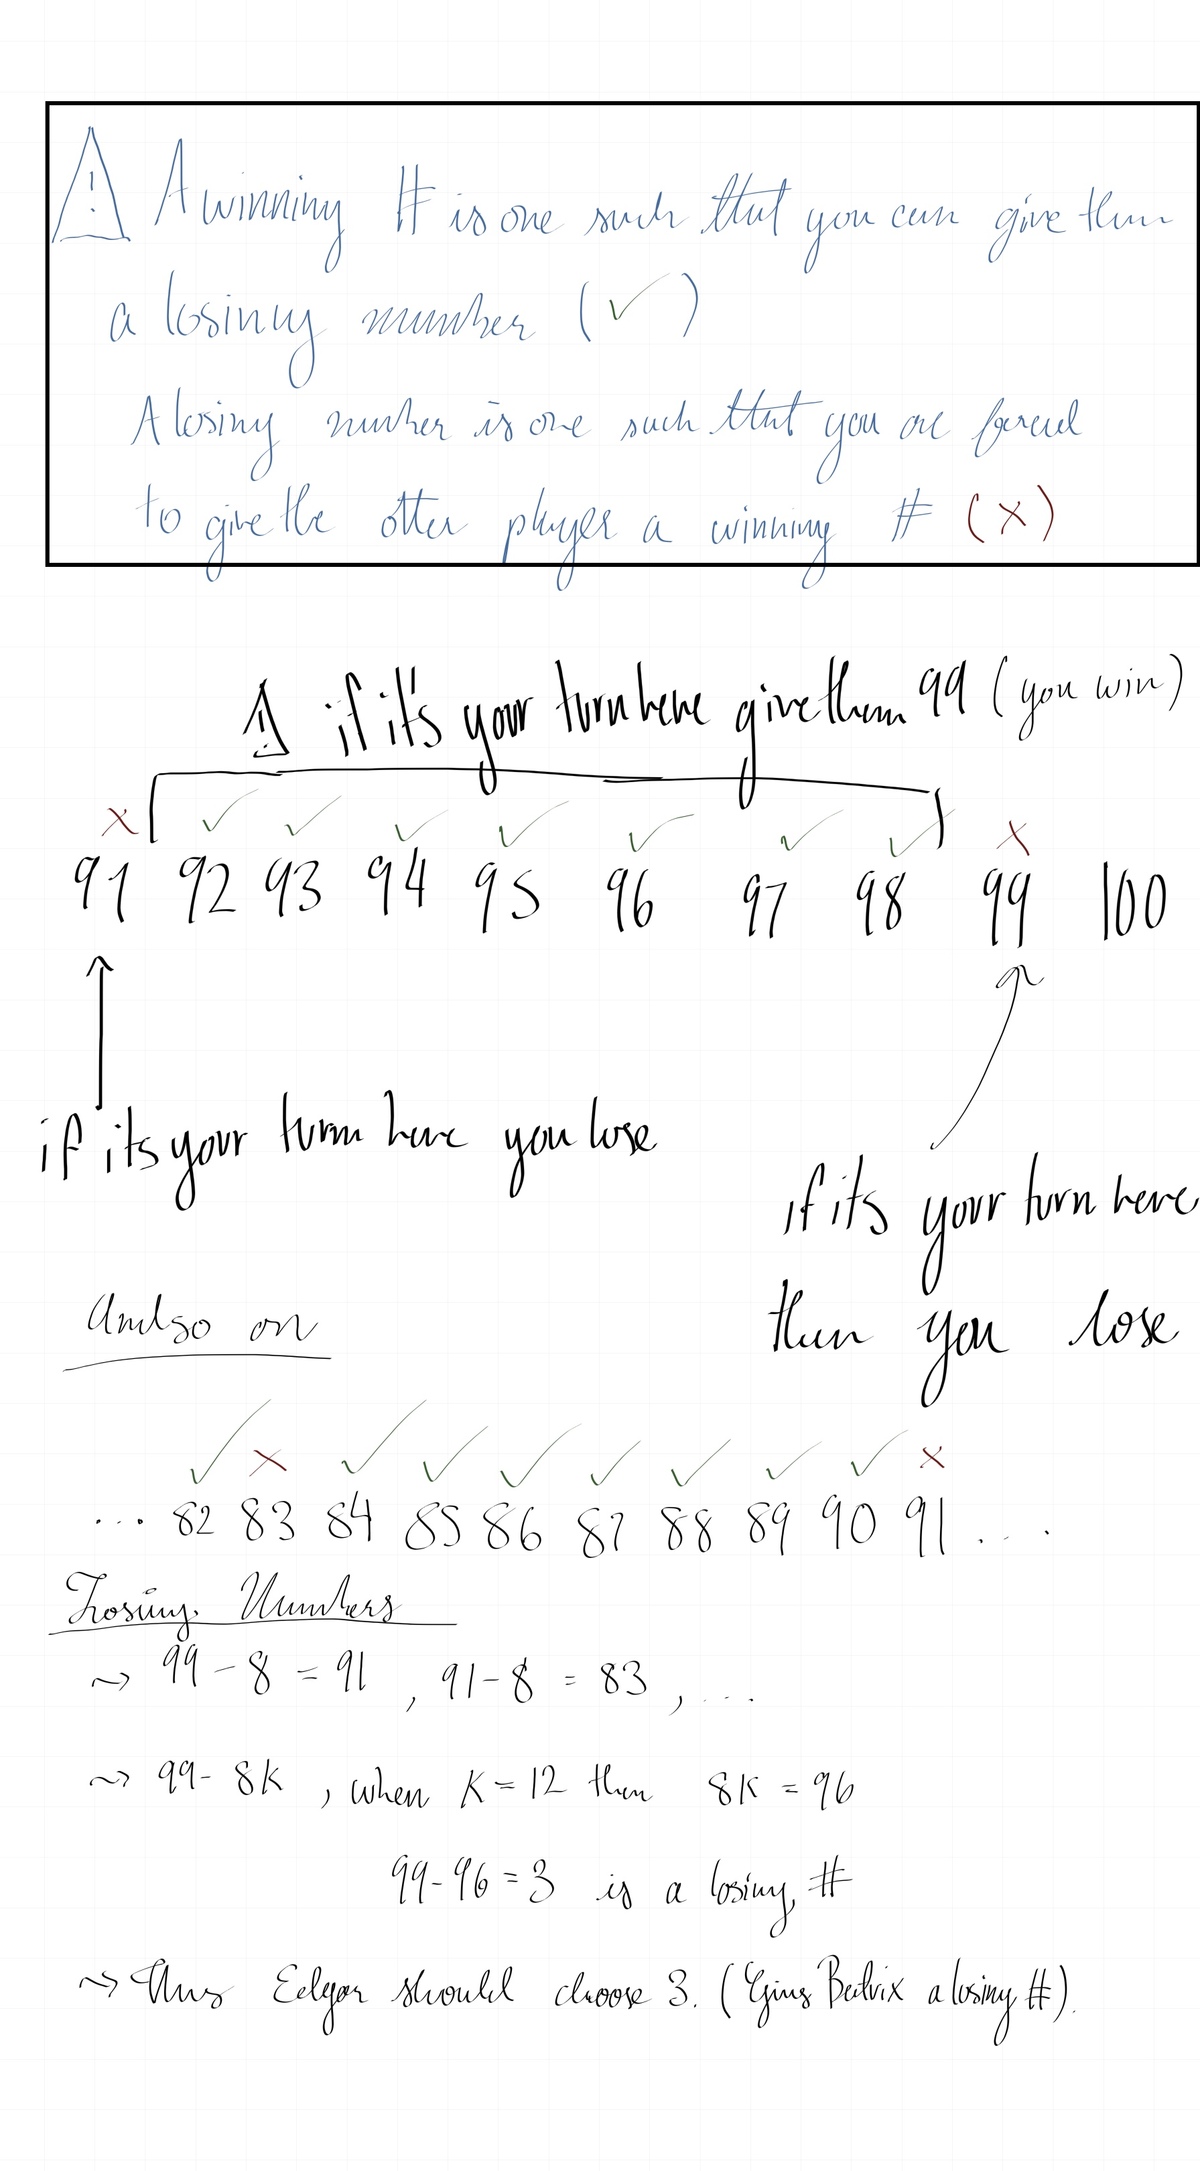 A winning # is one such that you can give them
a losing number (✓)
A losing number is one such that you are forced
to give the other player a winning # (×)
! if it's your turn here give them 99 (you win)
× ✓ ✓ ✓ ✓ ✓ ✓ ✓ ×
91 92 93 94 95 96 97 98 99 100
if its your turn here you lose
if its your turn here
then you lose
And so on
✓ × ✓ ✓ ✓ ✓ ✓ ✓ ✓ ×
... 82 83 84 85 86 87 88 89 90 91 ....
Losing Numbers
~> 99-8 = 91 , 91-8 = 83 , ...
~> 99-8K , when K=12 then 8K = 96
99-96=3 is a losing #
~> Thus Edgar should choose 3. (Giving Beatrix a losing #).